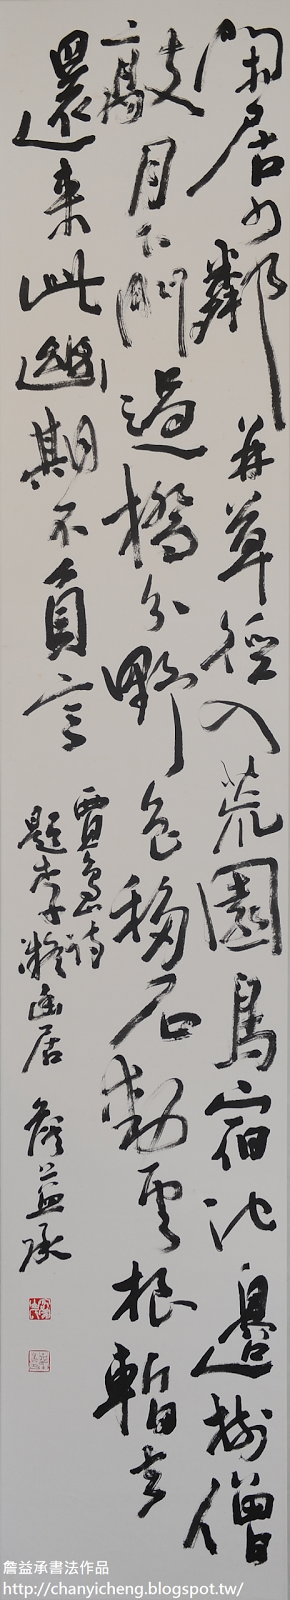 閑居少鄰并草徑入荒園鳥宿池邊樹僧
敲月下門過橋分野色移石動雲根暫去
還來此幽期不負言
賈島詩
題李凝幽居 詹益承
詹益承書法作品
http://chanyicheng.blogspot.tw/